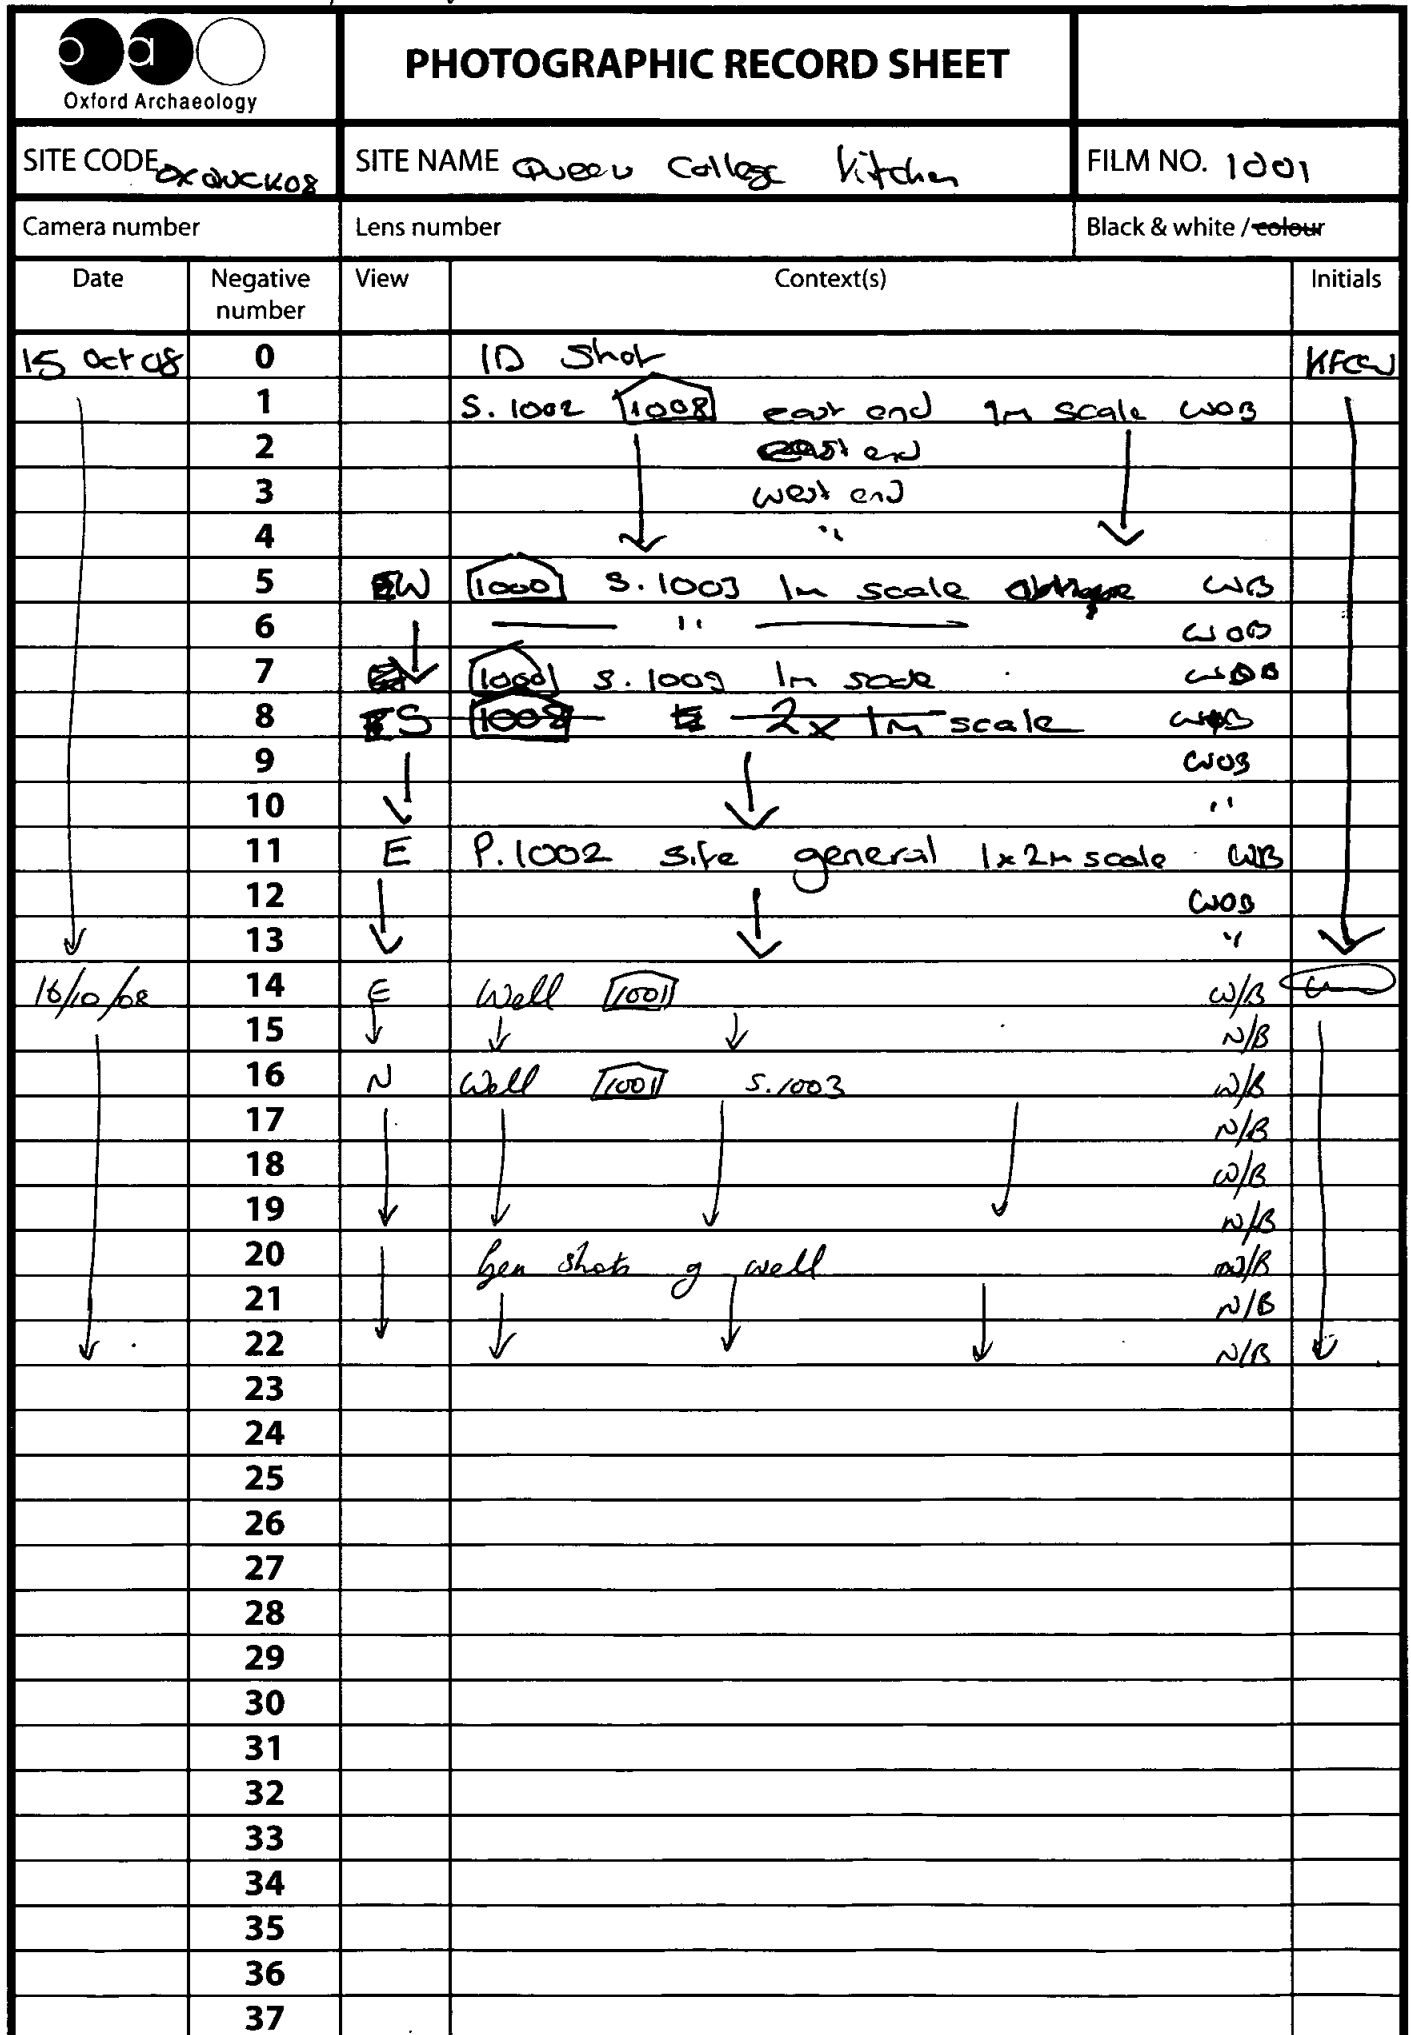 oa
Oxford Archaeology
PHOTOGRAPHIC RECORD SHEET
SITE CODE OXQUCK08 SITE NAME Queen College Kitchen FILM NO. 1001
Camera number Lens number Black & white / colour
Date Negative number View Context(s) Initials
15 Oct 08 0 ID Shot
1 S. 1002 1008 east end 1m scale WOB
2 east end
3 west end
4 "
5 W 1000 S. 1003 1m scale WB
6 " WOB
7 1000 S. 1003 1m scale WOB
8 S 1008 2x 1m scale
9 WOB
10 "
11 E P. 1002 site general 1x2m scale WB
12 WOB
13 "
16/10/08 14 E Well 1001 W/B
15 N/B
16 N Well 1001 S. 1003 W/B
17 N/B
18 W/B
19 N/B
20 Gen shots of well W/B
21 N/B
22 N/B
23
24
25
26
27
28
29
30
31
32
33
34
35
36
37